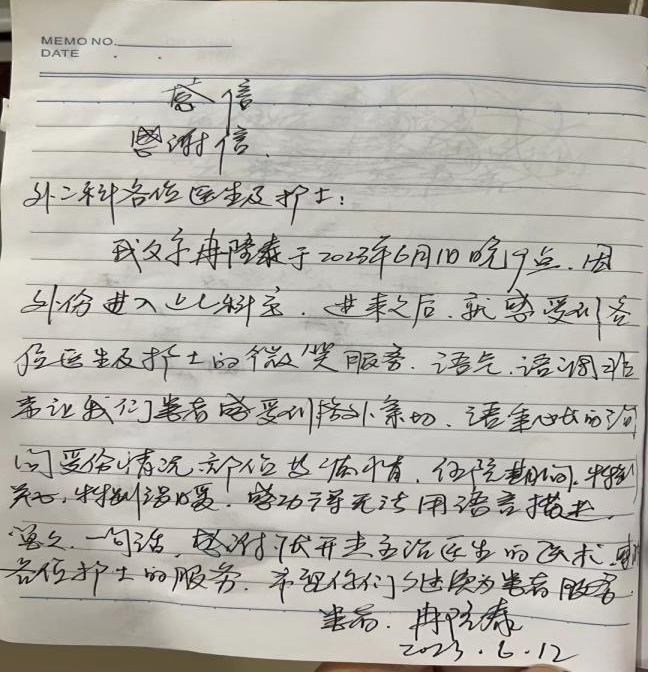 MEMO NO.
DATE . .
感信
感谢信.
外二科各位医生及护士:
我父亲冉隆泰于2023年6月1日晚9点.因
外伤进入此科室.进来之后.就感受到各
位医生及护士的微笑服务.语气.语调非
常让我们患者感受到格外亲切.语重心长的询
问受伤情况部位及病情.住院期间.特别
关心.特别温暖.感动得无法用语言描述.
总之.一句话.感谢伏开杰主治医生的医术.
各位护士的服务.希望你们继续为患者服务.
患者.冉隆泰
2023.6.12